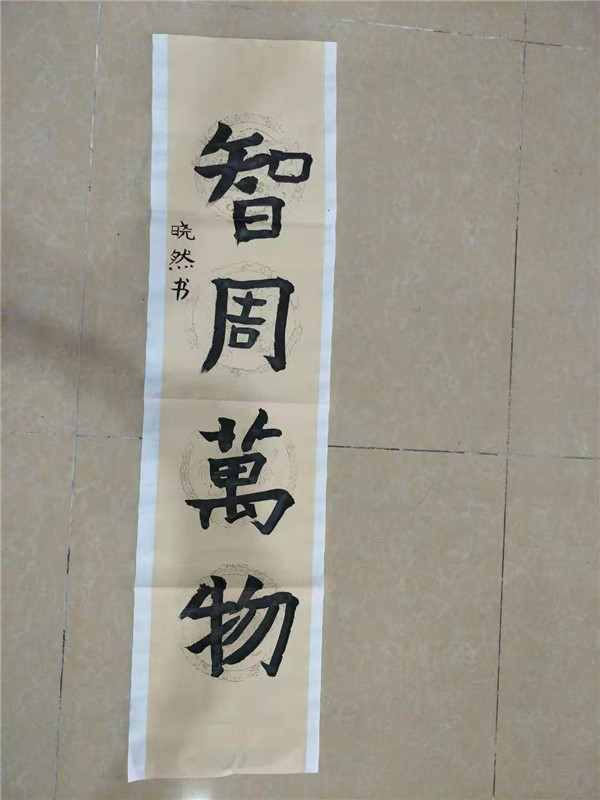 智周萬物
晓然书